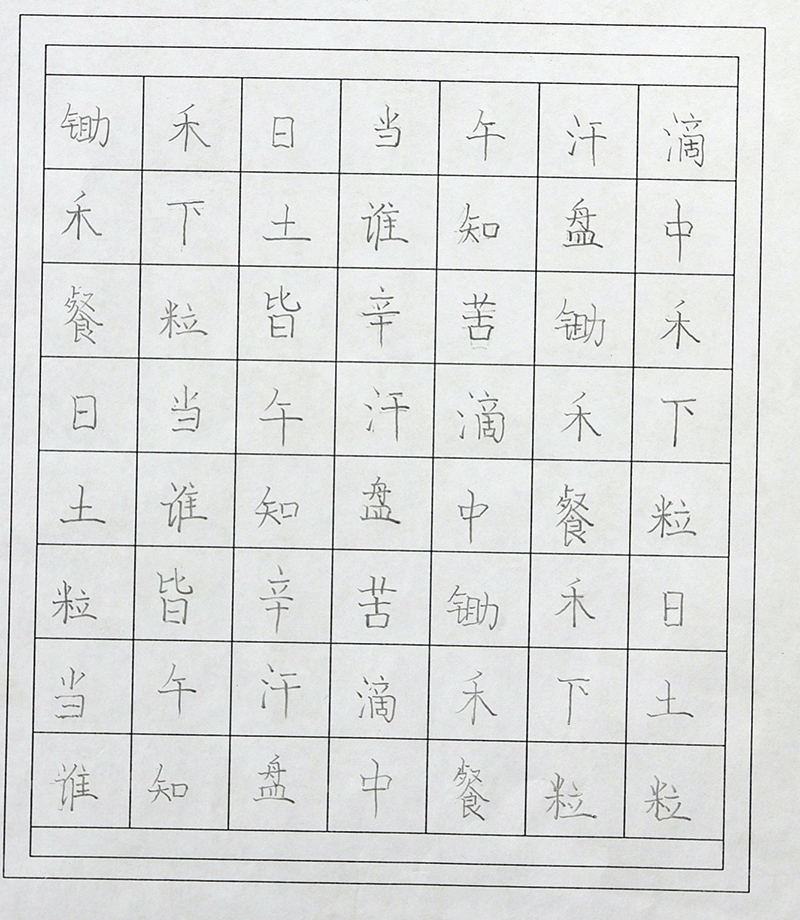 锄禾日当午汗滴
禾下土谁知盘中
餐粒皆辛苦锄禾
日当午汗滴禾下
土谁知盘中餐粒
粒皆辛苦锄禾日
当午汗滴禾下土
谁知盘中餐粒粒